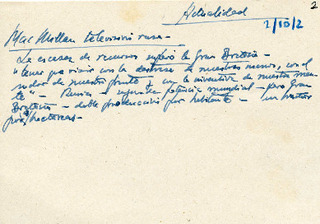 2
Actualidad
2/10/2
Mac Millan televisión rusa -
La escasez de recursos superó la Gran Bretaña -
"tiene que vivir con la destreza de nuestras manos, con el
sudor de nuestra frente y con la inventiva de nuestra men
te" - Rusia - segunda potencia mundial - pero Gran
Bretaña - doble producción por habitante -
por hectáreas -